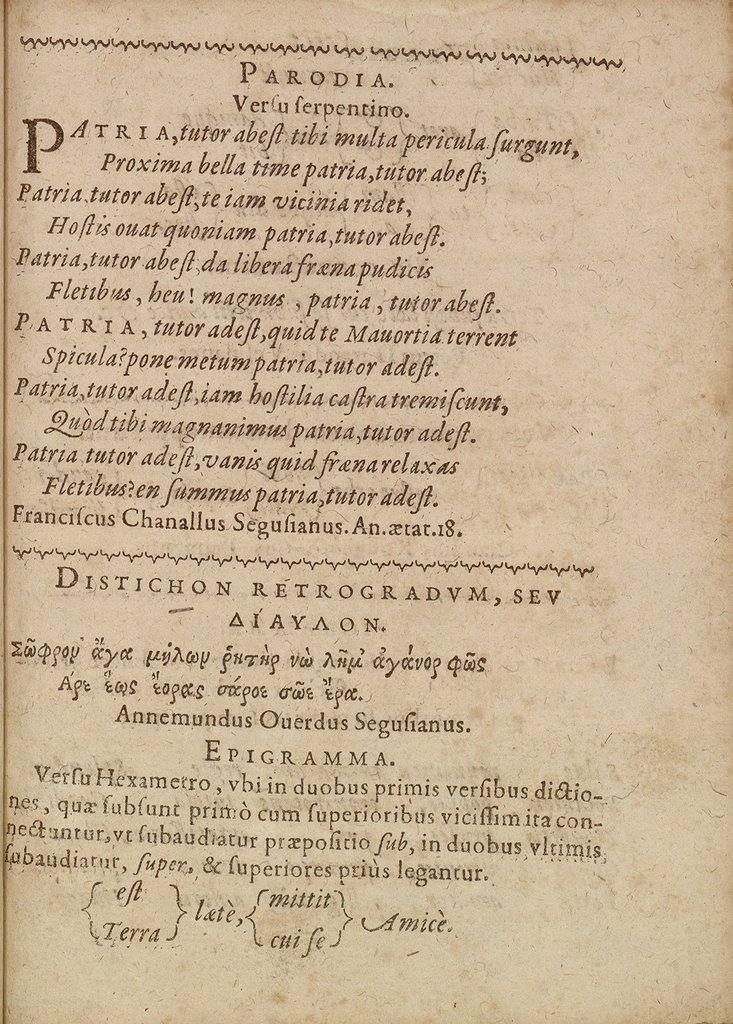 PARODIA.
Versu serpentino.
PATRIA, tutor abest tibi multa pericula surgunt,
Proxima bella time patria, tutor abest;
Patria, tutor abest, te iam vicinia ridet,
Hostis ouat quoniam patria, tutor abest.
Patria, tutor abest, da libera fræna pudicis
Fletibus, heu! magnus, patria, tutor abest.
PATRIA, tutor adest, quid te Mauortia terrent
Spicula? pone metum patria, tutor adest.
Patria, tutor adest, iam hostilia castra tremiscunt,
Quòd tibi magnanimus patria, tutor adest.
Patria tutor adest, vanis quid fræna relaxas
Fletibus? en summus patria, tutor adest.
Franciscus Chanallus Segusianus. An. ætat. 18.
DISTICHON RETROGRADVM, SEV
ΔΙΑΥΛΟΝ.
Σῶφρον ἄγα μήλων ῥητὴρ νὼ λῆμ' ἀγάνορ φῶς
Annemundus Ouerdus Segusianus.
EPIGRAMMA.
Versu Hexametro, vbi in duobus primis versibus dictio-
nes, quæ subsunt primò cum superioribus vicissim ita con-
nectuntur, vt subaudiatur præpositio sub, in duobus vltimis
subaudiatur, super, & superiores priùs legantur.
est mittit
lætè, Amicè.
Terra cui se